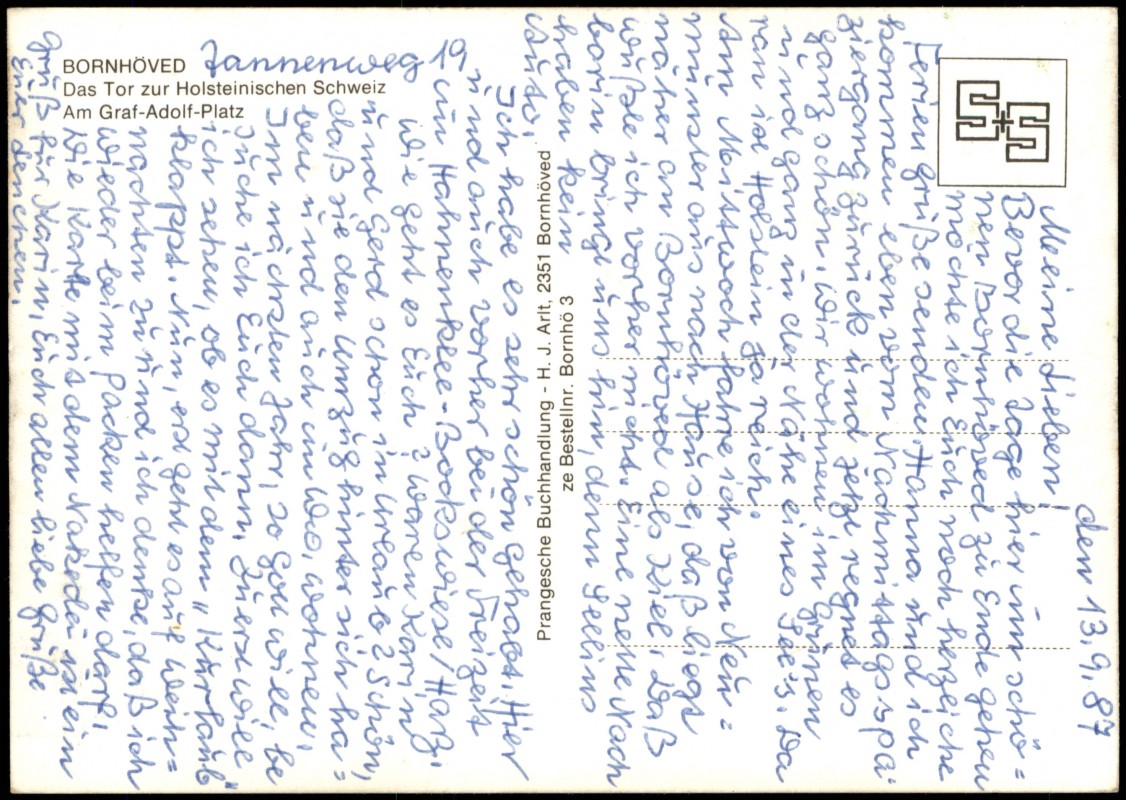 BORNHÖVED Tannenweg 19
Das Tor zur Holsteinischen Schweiz
Am Graf-Adolf-Platz
S+S
Prangesche Buchhandlung - H. J. Arlt, 2351 Bornhöved
ze Bestellnr. Bornhö 3
den 13.9.87
Meine Lieben!
Bevor die Tage hier im schö=
nen Bornhöved zu Ende gehen
möchte ich Euch noch herzliche
Feriengrüße senden. Hanna und ich
kommen eben vom Nachmittagsspa
ziergang zurück und jetzt regnet es
ganz schön. Wir wohnen im Grünen
und ganz in der Nähe eines See's. Da
ran ist Holstein ja reich.
Am Mittwoch fahre ich von Neu=
münster aus nach Hause, daß liegt
näher an Bornhöved als Kiel. Daß
wußte ich vorher nicht. Eine nette Nach
barin bringt uns hin, denn
haben kein
Auto.
Ich habe es sehr schön gehabt. Hier
und auch vorher bei der Freizeit
in Hahnenklee-Bockswiese/Harz.
Wie geht es Euch? Waren Karin
und Gerd schon in Urlaub? Schön,
daß sie den Umzug hinter sich ha=
ben und auch im Wo. wohnen.
Im nächsten Jahr, so Gott will, be
suche ich Euch dann. Zuerst will
ich sehen, ob es mit dem "Kürlaub"
klappt. Nun, erst geht es auf Weih=
nachten zu und ich denke, daß ich
wieder beim Packen helfen darf.
Die Karte, mit dem Nakedei ist ein
Gruß für Karin, Euch allen liebe Grüße
Euer Lenchen.